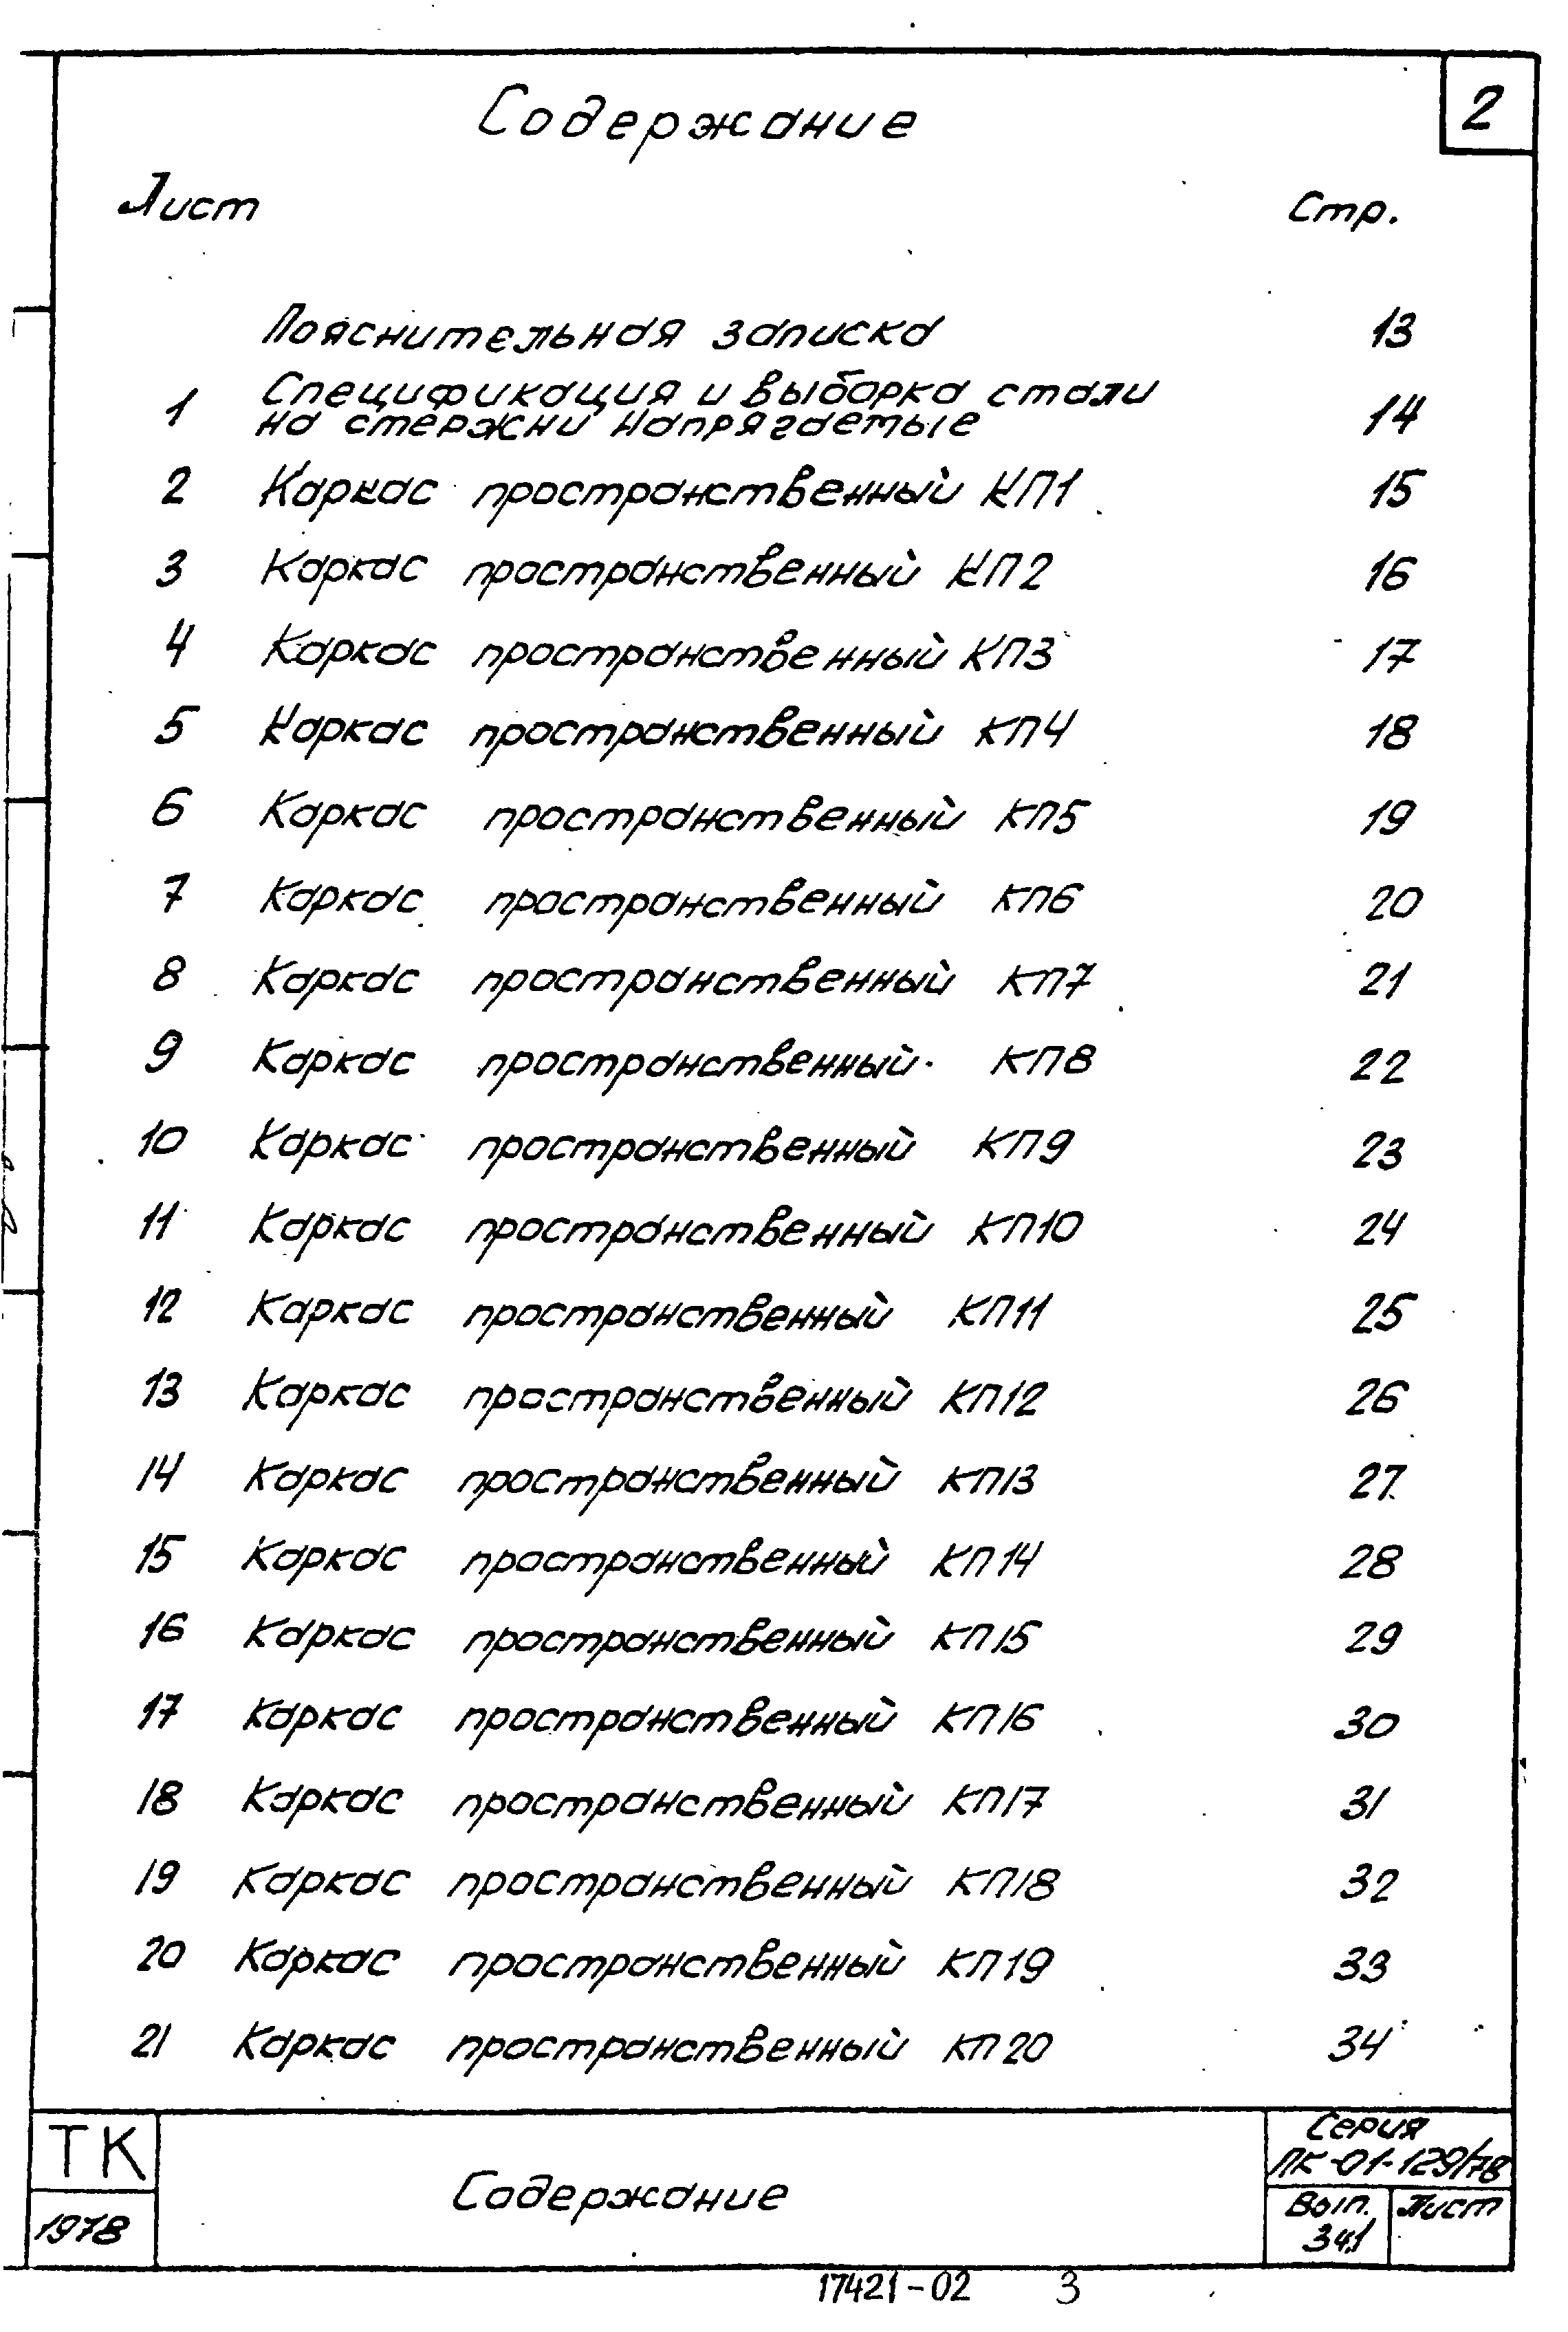 2
Содержание
Лист Стр.
Пояснительная записка 13
1 Спецификация и выборка стали
на стержни напрягаемые 14
2 Каркас пространственный КП1 15
3 Каркас пространственный КП2 16
4 Каркас пространственный КП3 17
5 Каркас пространственный КП4 18
6 Каркас пространственный КП5 19
7 Каркас пространственный КП6 20
8 Каркас пространственный КП7 21
9 Каркас пространственный КП8 22
10 Каркас пространственный КП9 23
11 Каркас пространственный КП10 24
12 Каркас пространственный КП11 25
13 Каркас пространственный КП12 26
14 Каркас пространственный КП13 27
15 Каркас пространственный КП14 28
16 Каркас пространственный КП15 29
17 Каркас пространственный КП16 30
18 Каркас пространственный КП17 31
19 Каркас пространственный КП18 32
20 Каркас пространственный КП19 33
21 Каркас пространственный КП20 34
ТК
1978
Содержание
Серия
ПК-01-129/78
Вып. Лист
17421-02 3